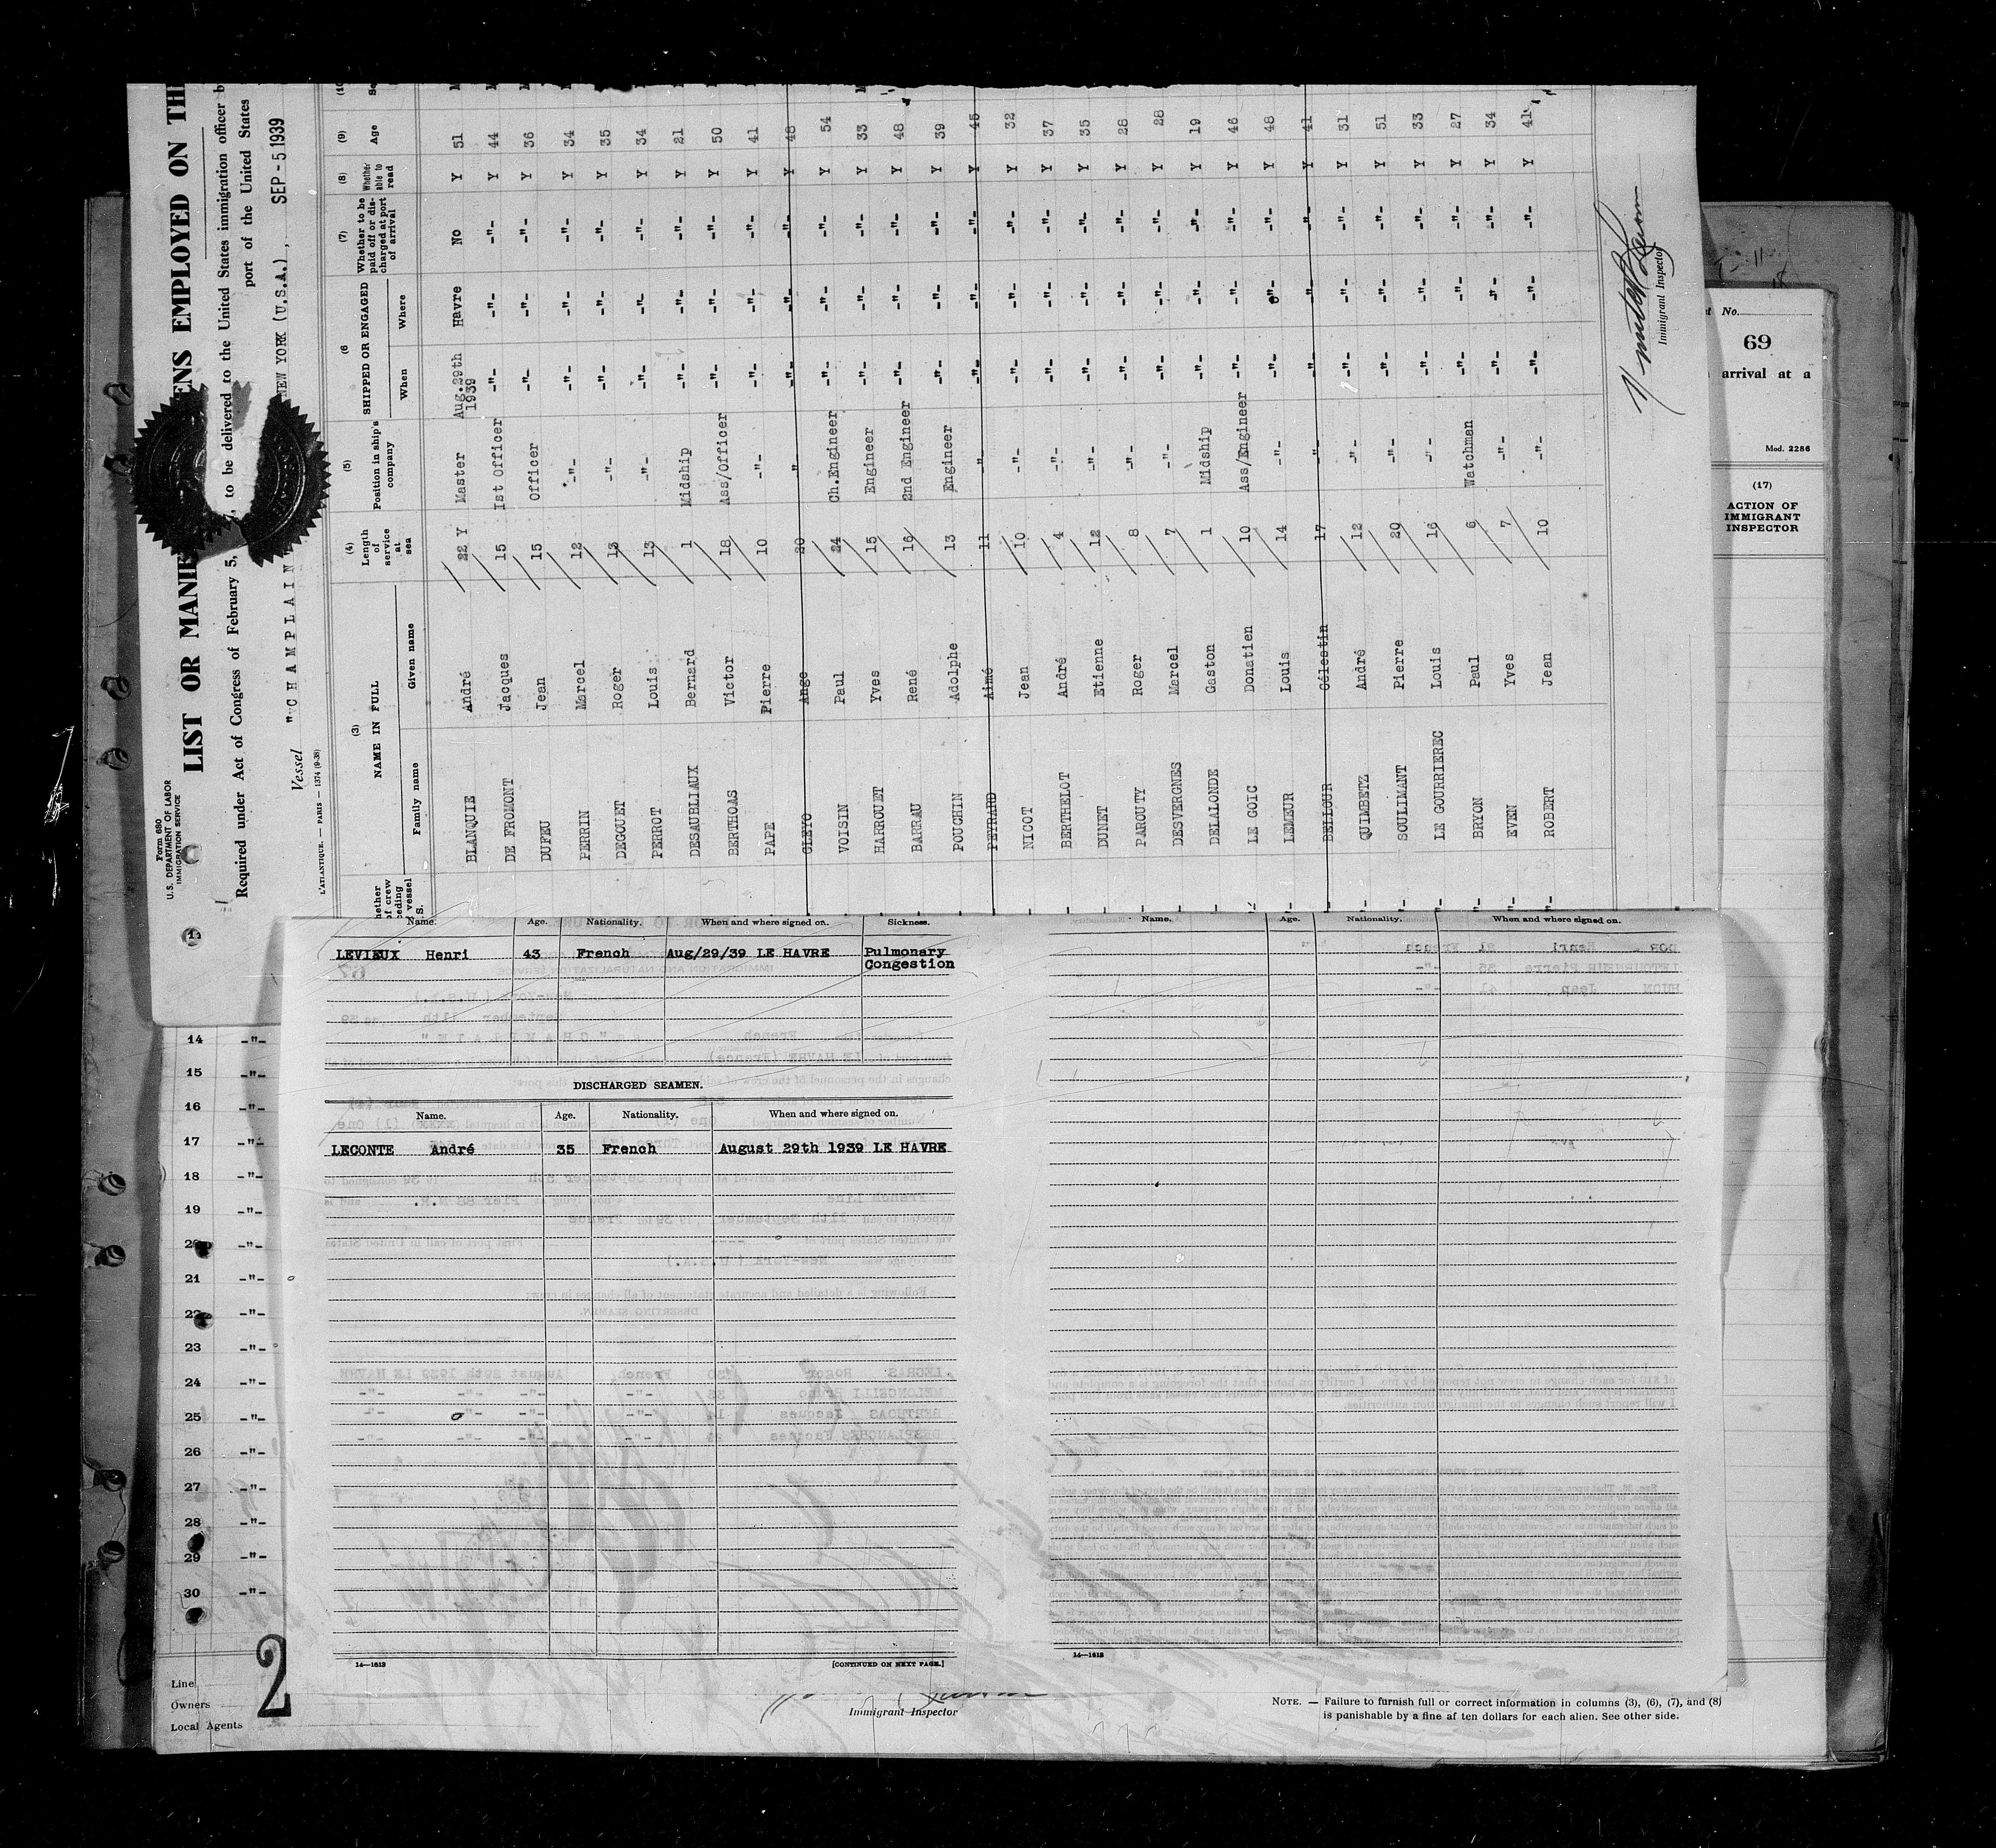 Form 680
U.S. DEPARTMENT OF LABOR
IMMIGRATION SERVICE
LIST OR MANIFE ENS EMPLOYED ON TH
Required under Act of Congress of February 5, , to be delivered to the United States immigration officer b
port of the United States
Vessel "CHAMPLAIN NEW YORK (U.S.A.), SEP -5 1939
L'ATLANTIQUE. — PARIS — 1374 (9-38)
(3) (4) (5) (6 (7) (8) (9)
NAME IN FULL Length of service at sea Position in ship's company SHIPPED OR ENGAGED Whether to be paid off or discharged at port of arrival Whether able to read Age
Family name Given name When Where
BLANQUIE André 22 Y Master Aug.29th 1939 Havre No Y 51
DE FROMONT Jacques 15 Ist Officer -"- -"- -"- Y 44
DUFEU Jean 15 Officer -"- -"- -"- Y 36
PERRIN Marcel 12 -"- -"- -"- -"- Y 34
DEGOUET Roger 13 -"- -"- -"- -"- Y 35
PERROT Louis 13 -"- -"- -"- -"- Y 34
DESAUBLIAUX Bernard 1 Midship -"- -"- -"- Y 21
BERTHOAS Victor 18 Ass/Officer -"- -"- -"- Y 50
PAPE Pierre 10 -"- -"- -"- -"- Y 41
GLEYO Ange 20 " -"- -"- -"- Y 48
VOISIN Paul 24 Ch.Engineer -"- -"- -"- Y 54
HARROUET Yves 15 Engineer -"- -"- -"- Y 33
BARRAU René 16 2nd Engineer -"- -"- -"- Y 48
POUCHIN Adolphe 13 Engineer -"- -"- -"- Y 39
PEYRARD Aimé 11 " -"- -"- -"- Y 45
NICOT Jean 10 -"- -"- -"- -"- Y 32
BERTHELOT André 4 -"- -"- -"- -"- Y 37
DUNET Etienne 12 -"- -"- -"- -"- Y 35
PAROUTY Roger 8 -"- -"- -"- -"- Y 28
DESVERGNES Marcel 7 -"- -"- -"- -"- Y 28
DELALONDE Gaston 1 Midship -"- -"- -"- Y 19
LE GOIC Donatien 10 Ass/Engineer -"- -"- -"- Y 46
LEMEUR Louis 14 -"- -"- -"- -"- Y 48
BELLOUR Célestin 17 -"- -"- -"- -"- Y 41
QUIMBETZ André 12 -"- -"- -"- -"- Y 31
SOULIMANT Pierre 20 -"- -"- -"- -"- Y 51
LE GOURRIEREC Louis 16 -"- -"- -"- -"- Y 33
BRYON Paul 6 Watchman -"- -"- -"- Y 27
EVEN Yves 7 -"- -"- -"- -"- Y 34
ROBERT Jean 10 -"- -"- -"- -"- Y 41
Immigrant Inspector
No.
69
arrival at a
Mod. 2286
(17)
ACTION OF
IMMIGRANT
INSPECTOR
Name. Age. Nationality. When and where signed on. Sickness.
LEVIEUX Henri 43 French Aug/29/39 LE HAVRE Pulmonary
Congestion
DISCHARGED SEAMEN.
Name. Age. Nationality. When and where signed on.
LECONTE André 35 French August 29th 1939 LE HAVRE
14—1613 [CONTINUED ON NEXT PAGE.]
Name. Age. Nationality. When and where signed on.
14—1613
14 -"-
15 -"-
16 -"-
17 -"-
18 -"-
19 -"-
20 -"-
21 -"-
22 -"-
23 -"-
24 -"-
25 -"-
26 -"-
27 -"-
28 -"-
29 -"-
30 -"-
2
Line
Owners
Local Agents
Immigrant Inspector
NOTE. — Failure to furnish full or correct information in columns (3), (6), (7), and (8)
is punishable by a fine af ten dollars for each alien. See other side.